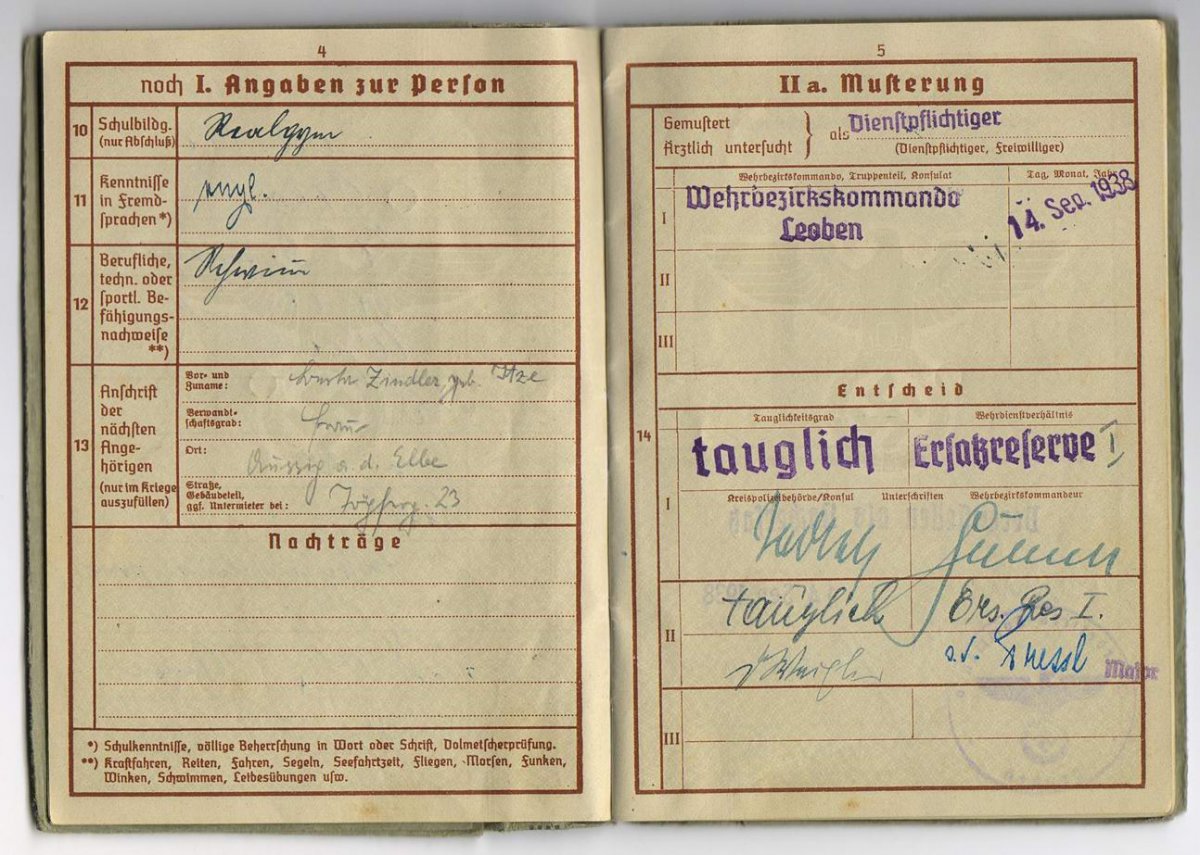 4
noch I. Angaben zur Person
10 Schulbildg. (nur Abschluß)
Realgym
11 Kenntnisse in Fremdsprachen *)
engl.
12 Berufliche, techn. oder sportl. Befähigungsnachweise **)
Schwimm
13 Anschrift der nächsten Angehörigen (nur im Kriege auszufüllen)
Vor- und Zuname: Zindler, geb.
Verwandtschaftsgrad: Frau
Ort: Aussig a. d. Elbe
Straße, Gebäudeteil, ggf. Untermieter bei: 23
Nachträge
*) Schulkenntnisse, völlige Beherrschung in Wort oder Schrift, Dolmetscherprüfung.
**) Kraftfahren, Reiten, Fahren, Segeln, Seefahrtzeit, Fliegen, Morsen, Funken,
Winken, Schwimmen, Leibesübungen usw.
5
II a. Musterung
Gemustert
Ärztlich untersucht } als Dienstpflichtiger
(Dienstpflichtiger, Freiwilliger)
Wehrbezirkskommando, Truppenteil, Konsulat
Tag, Monat, Jahr
I Wehrbezirkskommando
Leoben
14. Sep. 1938
II
III
Entscheid
14
Tauglichkeitsgrad
Wehrdienstverhältnis
tauglich
Ersatzreserve I
I
Kreispolizeibehörde/Konsul Unterschriften Wehrbezirkskommandeur
II
tauglich
Ers. Res I.
Major
III